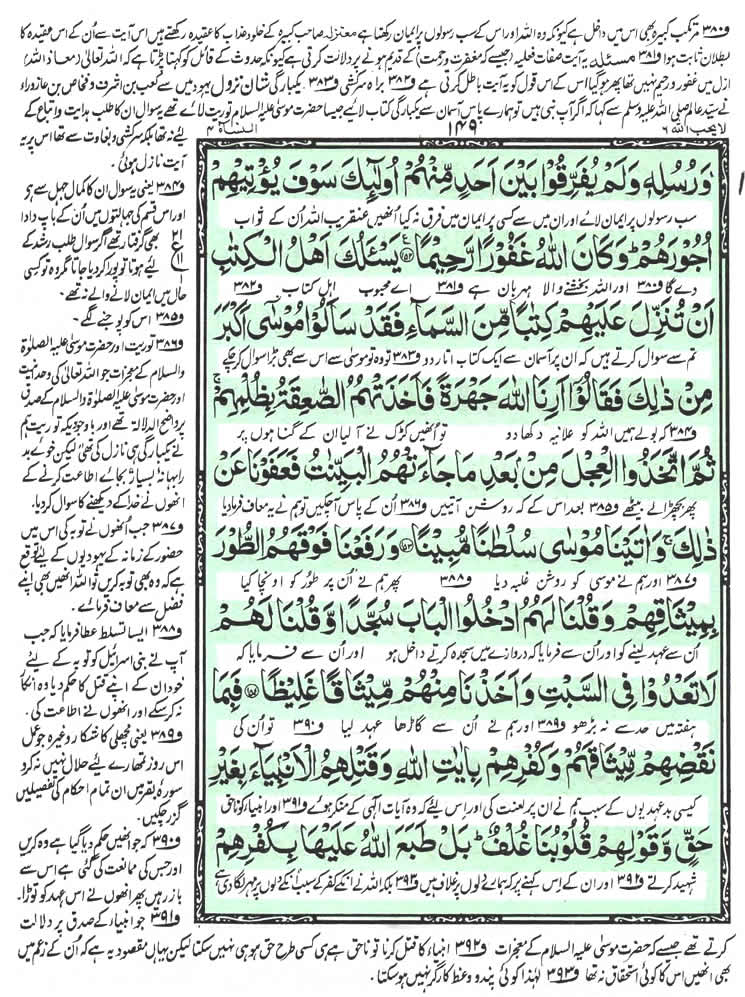 ف۳۸۰ مرتکب کبیرہ بھی اس میں داخل ہے کیونکہ وہ اللہ اور اس کے سب رسولوں پر ایمان رکھتا ہے معتزلہ صاحب کبیرہ کے خلود عذاب کا عقیدہ رکھتے ہیں اس آیت سے اُن کے اس عقیدہ کا
بطلان ثابت ہوا ف۳۸۱ مسئلہ یہ آیت صفات فعلیہ (جیسے کہ مغفرت و رحمت) کے قدیم ہونے پر دلالت کرتی ہے کیونکہ حدوث کے قائل کو کہنا پڑتا ہے کہ اللہ تعالیٰ (معاذ اللہ)
ازل میں غفور و رحیم نہیں تھا پھر ہو گیا اس کے اس قول کو یہ آیت باطل کرتی ہے ف۳۸۲ براہ سرکشی ف۳۸۳ یکبارگی شان نزول یہود میں سے کعب بن اشرف و فنحاص بن عازوراء
نے سید عالم صلی اللہ علیہ وسلم سے کہا کہ اگر آپ نبی ہیں تو ہمارے پاس آسمان سے یکبارگی کتاب لائیے جیسا حضرت موسیٰ علیہ السلام توریت لائے تھے یہ سوال ان کا طلب ہدایت و اتباع کے
لا یحب اللہ ۶
۱۴۹
النساء ۴
وَرُسُلِهٖ وَلَمْ یُفَرِّقُوْا بَیْنَ اَحَدٍ مِّنْهُمْ اُولٰٓىِٕكَ سَوْفَ یُؤْتِیْهِمْ
سب رسولوں پر ایمان لائے اور ان میں سے کسی پر ایمان میں فرق نہ کیا اُنھیں عنقریب اللہ اُن کے ثواب
اُجُوْرَهُمْ ؕ وَكَانَ اللّٰهُ غَفُوْرًا رَّحِیْمًا ۱۵۲ یَسْــٴَـلُكَ اَهْلُ الْكِتٰبِ
دے گا ف۳۸۰ اور اللہ بخشنے والا مہربان ہے ف۳۸۱ اے محبوب اہل کتاب ف۳۸۲
اَنْ تُنَزِّلَ عَلَیْهِمْ كِتٰبًا مِّنَ السَّمَآءِ فَقَدْ سَاَلُوْا مُوْسٰۤى اَكْبَرَ
تم سے سوال کرتے ہیں کہ ان پر آسمان سے ایک کتاب اتار دو ف۳۸۳ تو وہ تو موسیٰ سے اس سے بھی بڑا سوال کر چکے
مِنْ ذٰلِكَ فَقَالُوْۤا اَرِنَا اللّٰهَ جَهْرَةً فَاَخَذَتْهُمُ الصّٰعِقَةُ بِظُلْمِهِمْ ۚ
ف۳۸۴ کہ بولے ہمیں اللہ کو علانیہ دکھا دو تو اُنھیں کڑک نے آ لیا ان کے گناہوں پر
ثُمَّ اتَّخَذُوا الْعِجْلَ مِنْۢ بَعْدِ مَا جَآءَتْهُمُ الْبَیِّنٰتُ فَعَفَوْنَا عَنْ
پھر بچھڑا لے بیٹھے ف۳۸۵ بعد اس کے کہ روشن آیتیں ف۳۸۶ اُن کے پاس آ چکیں تو ہم نے یہ معاف فرما دیا
ذٰلِكَ ۚ وَاٰتَیْنَا مُوْسٰى سُلْطٰنًا مُّبِیْنًا ۱۵۳ وَرَفَعْنَا فَوْقَهُمُ الطُّوْرَ
ف۳۸۷ اور ہم نے موسیٰ کو روشن غلبہ دیا ف۳۸۸ پھر ہم نے اُن پر طور کو اونچا کیا
بِمِیْثَاقِهِمْ وَقُلْنَا لَهُمُ ادْخُلُوا الْبَابَ سُجَّدًا وَّقُلْنَا لَهُمْ
اُن سے عہد لینے کو اور اُن سے فرمایا کہ دروازے میں سجدہ کرتے داخل ہو اور اُن سے فرمایا کہ
لَا تَعْدُوْا فِی السَّبْتِ وَاَخَذْنَا مِنْهُمْ مِّیْثَاقًا غَلِیْظًا ۱۵۴ فَبِمَا
ہفتہ میں حد سے نہ بڑھو ف۳۸۹ اور ہم نے اُن سے گاڑھا عہد لیا ف۳۹۰ تو اُن کی
نَقْضِهِمْ مِّیْثَاقَهُمْ وَكُفْرِهِمْ بِاٰیٰتِ اللّٰهِ وَقَتْلِهِمُ الْاَنْۢبِیَآءَ بِغَیْرِ
کیسی بدعہدیوں کے سبب ہم نے ان پر لعنت کی اور اس لیئے کہ وہ آیات الٰہی کے منکر ہوئے ف۳۹۱ اور انبیاء کو ناحق
حَقٍّ وَّقَوْلِهِمْ قُلُوْبُنَا غُلْفٌ ؕ بَلْ طَبَعَ اللّٰهُ عَلَیْهَا بِكُفْرِهِمْ
شہید کرتے ف۳۹۲ اور ان کے اس کہنے پر کہ ہمارے دلوں پر غلاف ہیں ف۳۹۳ بلکہ اللہ نے انکے کفر کے سبب انکے دلوں پر مہر لگا دی ہے
لیئے نہ تھا بلکہ سرکشی و بغاوت سے تھا اس پر یہ
آیت نازل ہوئی۔
ف۳۸۴ یعنی یہ سوال ان کا کمال جہل سے ہے
اور اس قسم کی جہالتوں میں اُن کے باپ دادا
بھی گرفتار تھے اگر سوال طلب رشد کے
لیئے ہوتا تو پورا کر دیا جاتا مگر وہ تو کسی
حال میں ایمان لانے والے نہ تھے۔
ف۳۸۵ اس کو پوجنے لگے۔
ف۳۸۶ توریت اور حضرت موسیٰ علیہ الصلوٰۃ
والسلام کے معجزات جو اللہ تعالیٰ کی وحدانیت
اور حضرت موسیٰ علیہ الصلوٰۃ والسلام کے صدق
پر واضح الدلالۃ تھے اور باوجودیکہ توریت ہم
نے یکبارگی ہی نازل کی تھی لیکن خوئے بد
را بہانہ بسیار بجائے اطاعت کرنے کے
انھوں نے خدا کے دیکھنے کا سوال کر دیا۔
ف۳۸۷ جب اُنھوں نے توبہ کی اس میں
حضور کے زمانہ کے یہودیوں کے لیئے توقع
ہے کہ وہ بھی توبہ کریں تو اللہ انھیں بھی اپنے
فضل سے معاف فرمائے۔
ف۳۸۸ ایسا تسلط عطا فرمایا کہ جب
آپ نے بنی اسرائیل کو توبہ کے لیئے
خود ان کے اپنے قتل کا حکم دیا وہ انکار
نہ کر سکے اور انھوں نے اطاعت کی۔
ف۳۸۹ یعنی مچھلی کا شکار وغیرہ جو عمل
اس روز تمہارے لیئے حلال نہیں نہ کرو
سورہ بقر میں ان تمام احکام کی تفصیلیں
گزر چکیں۔
ف۳۹۰ کہ جو انھیں حکم دیا گیا ہے وہ کریں
اور جس کی ممانعت کی گئی ہے اس سے
باز رہیں پھر انھوں نے اس عہد کو توڑا۔
ف۳۹۱ جو انبیاء کے صدق پر دلالت
کرتے تھے جیسے کہ حضرت موسیٰ علیہ السلام کے معجزات ف۳۹۲ انبیاء کا قتل کرنا تو ناحق ہے ہی کسی طرح حق ہو ہی نہیں سکتا لیکن یہاں مقصود یہ ہے کہ اُن کے زعم میں
بھی انھیں اس کا کوئی استحقاق نہ تھا ف۳۹۳ لہٰذا کوئی پند و وعظ کارگر نہیں ہو سکتا۔